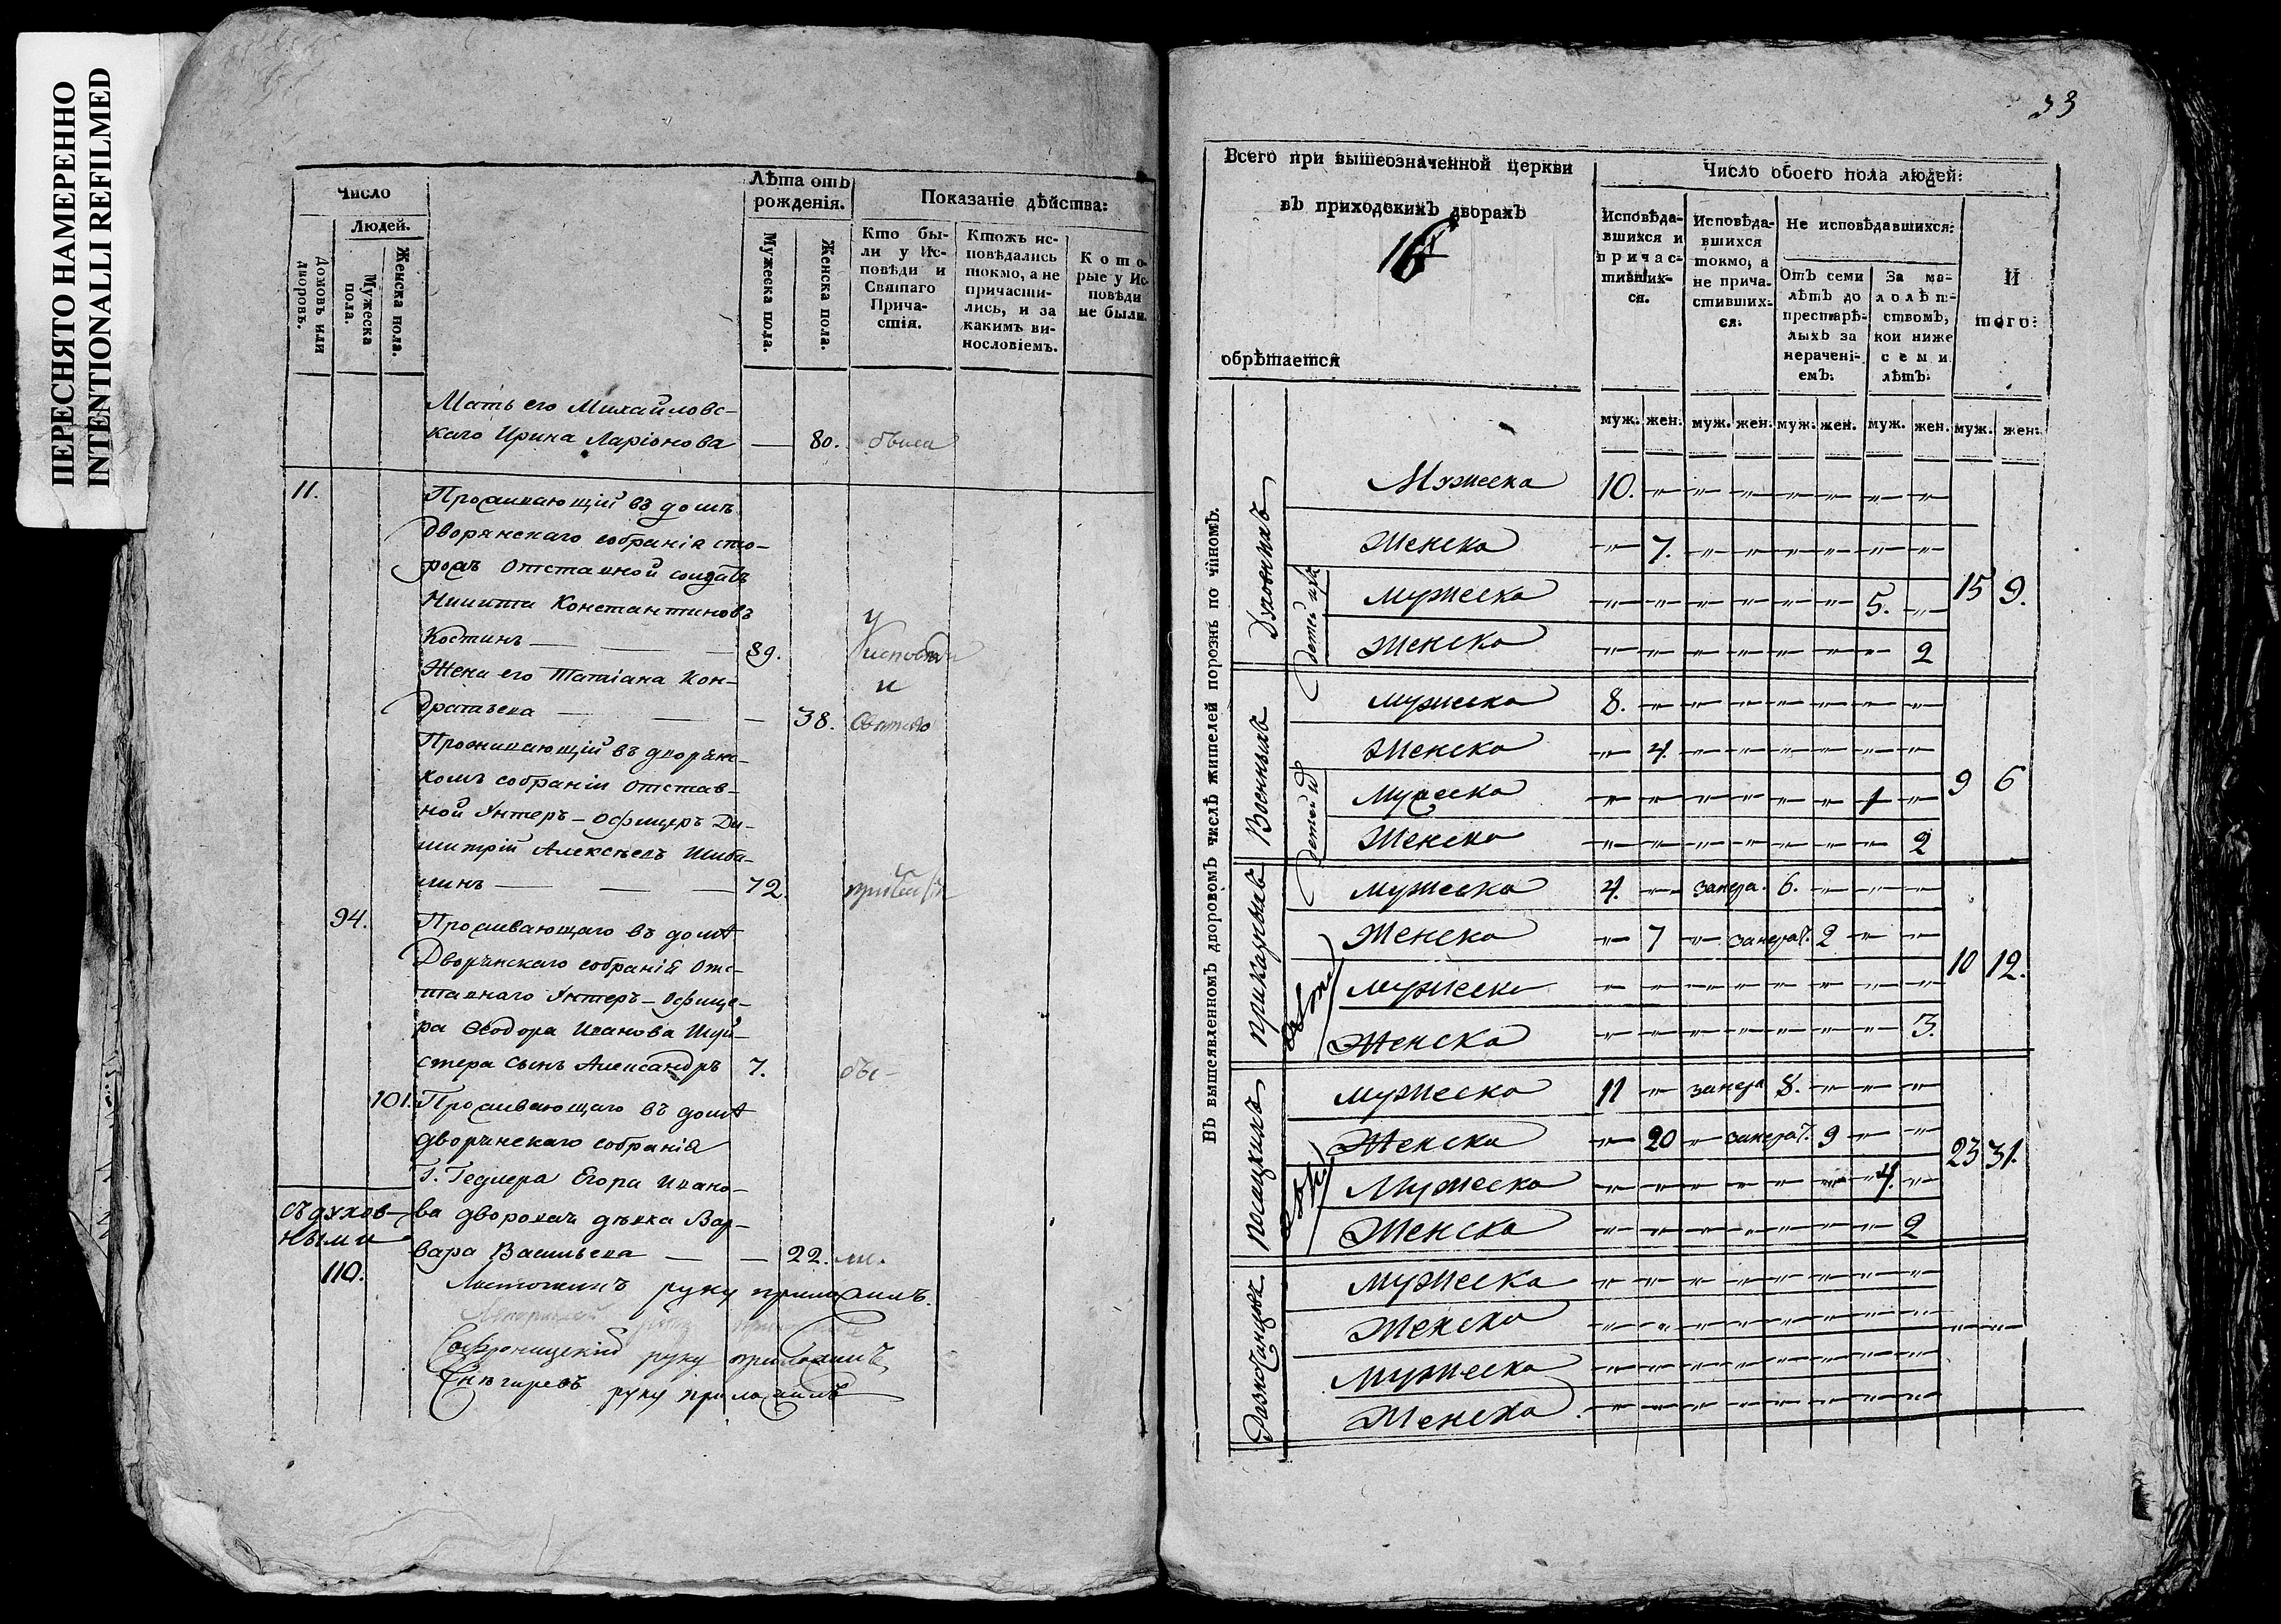 ПЕРЕСНЯТО НАМЕРЕННО
INTENTIONALLI REFILMED
Число
Людей.
Домовъ или дворовъ.
Мужеска пола.
Женска пола.
Лѣта отъ рожденія.
Мужеска пола.
Женска пола.
Показаніе дѣйства:
Кто были у Исповѣди и Святаго Причастія.
Ктожъ исповѣдались токмо, а не причастились, и за какимъ винословіемъ.
Которые у Исповѣди не были.
Мать его Михайловс-
каго Ирина Ларіонова — 80. была
11. Проживающій въ домѣ
дворянскаго собранія сто-
рожъ отставной солдатъ
Никита Константиновъ
Костинъ — — — 89. у исповѣди
Жена его Татіана Кон- и
дратьева — — — 38. Святаго
Проживающій въ дворянс-
комъ собраніи отстав-
ной Унтеръ-Офицеръ Ди-
митрій Алексѣевъ Шиба-
линъ — — — 72.
94. Проживающаго въ домѣ
Дворянскаго собранія От-
ставнаго Унтеръ-Офице-
ра Ѳеодора Иванова
стера сынъ Александръ 7.
101. Проживающаго въ домѣ
дворянскаго собранія
Г. Егора Ивано-
съ духов- ва дворовая дѣвка Вар-
ными вара Васильева — — 22.
110.
руку приложилъ.
Софроницкій руку приложилъ
Снѣгиревъ руку приложилъ
33
Всего при вышеозначенной церкви
въ приходскихъ дворахъ
16
обрѣтается
Число обоего пола людей:
Исповѣдавшихся и причастившихся.
Исповѣдавшихся токмо, а не причастившихся.
Не исповѣдавшихся:
Отъ семи лѣтъ до престарѣлыхъ за нераченіемъ.
За малолѣтствомъ, кои ниже семи лѣтъ.
Итого:
муж. жен. муж. жен. муж. жен. муж. жен. муж. жен.
Въ вышеявленномъ дворовомъ числѣ жителей порознь по чиномъ.
Духовныхъ
Мужеска 10. 15 9.
Женска 7.
Мужеска 5.
Женска 2
Военныхъ
Мужеска 8. 9 6
Женска 4.
Мужеска 1
Женска 2
приказныхъ
Мужеска 4. 6. 10 12.
Женска 7 2
Мужеска
Женска 3.
посацкихъ
Мужеска 11 8. 23 31.
Женска 20 9
Мужеска 4.
Женска 2
Разночинцевъ
Мужеска
Женска
Мужеска
Женска